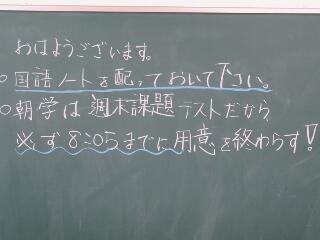 おはようございます。
○国語ノートを配っておいて下さい。
○朝学は週末課題テストだから
必ず8:05までに用意を終わらす!